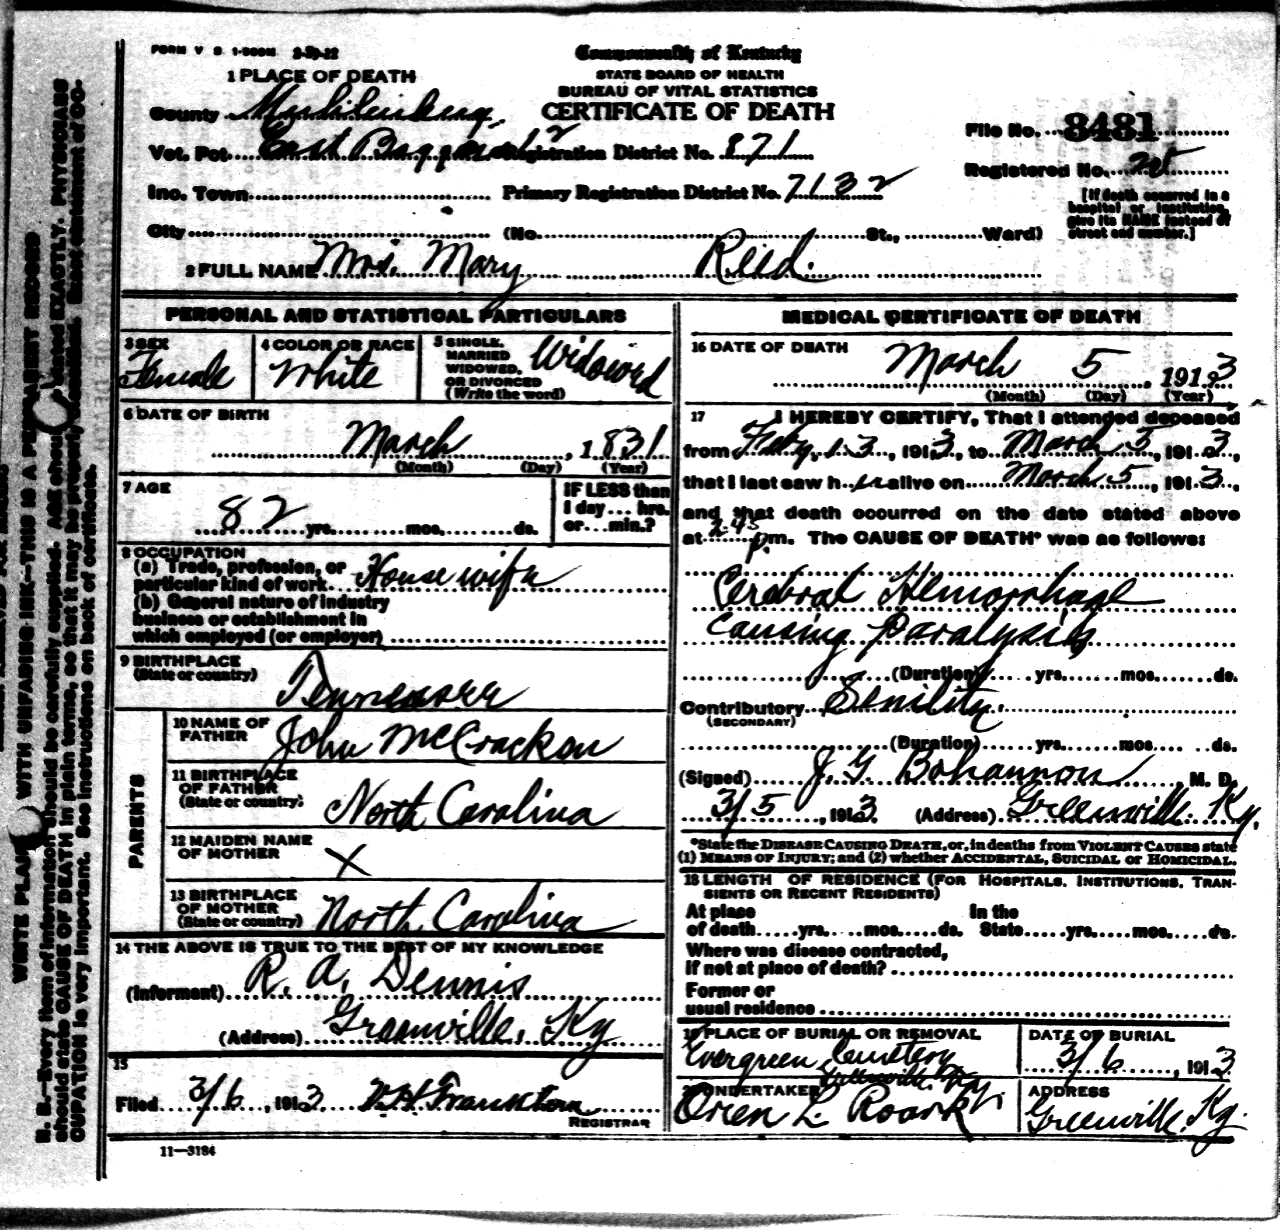 FORM V S. 1-500M 2-29-12
Commonwealth of Kentucky
STATE BOARD OF HEALTH
BUREAU OF VITAL STATISTICS
CERTIFICATE OF DEATH
1 PLACE OF DEATH
County Muhlenberg
Vot. Pct. East Registration District No. 871
File No. 8481
Registered No. 25
Inc. Town Primary Registration District No. 7132
[If death occurred in a hospital or institution, give its NAME instead of street and number.]
City (No. St., Ward)
2 FULL NAME Mrs. Mary Reed.
PERSONAL AND STATISTICAL PARTICULARS
3 SEX Female
4 COLOR OR RACE White
5 SINGLE, MARRIED WIDOWED, OR DIVORCED (Write the word) Widowed
6 DATE OF BIRTH
March , 1831
(Month) (Day) (Year)
7 AGE
82 yrs. mos. ds.
IF LESS than 1 day ... hrs. or ... min.?
8 OCCUPATION
(a) Trade, profession, or
particular kind of work. House wife
(b) General nature of industry
business or establishment in
which employed (or employer)
9 BIRTHPLACE
(State or country) Tennessee
PARENTS
10 NAME OF FATHER John McCracken
11 BIRTHPLACE OF FATHER (State or country) North Carolina
12 MAIDEN NAME OF MOTHER X
13 BIRTHPLACE OF MOTHER (State or country) North Carolina
14 THE ABOVE IS TRUE TO THE BEST OF MY KNOWLEDGE
(Informant) R. A. Dennis
(Address) Greenville, Ky
15
Filed 3/6, 1913
REGISTRAR
11-3184
MEDICAL CERTIFICATE OF DEATH
16 DATE OF DEATH
March 5, 1913
(Month) (Day) (Year)
17 I HEREBY CERTIFY, That I attended deceased
from Feby. 13, 1913, to March 5, 1913,
that I last saw her alive on March 5, 1913,
and that death occurred on the date stated above
at 2.45 p. m. The CAUSE OF DEATH* was as follows:
Cerebral Hemorrhage
causing paralysis
(Duration) yrs. mos. ds.
Contributory Senility.
(SECONDARY)
(Duration) yrs. mos. ds.
(Signed) J. G. Bohannon, M. D.
3/5, 1913 (Address) Greenville. Ky.
*State the DISEASE CAUSING DEATH, or, in deaths from VIOLENT CAUSES state
(1) MEANS OF INJURY; and (2) whether ACCIDENTAL, SUICIDAL OR HOMICIDAL.
18 LENGTH OF RESIDENCE (FOR HOSPITALS, INSTITUTIONS, TRAN-
SIENTS OR RECENT RESIDENTS)
At place In the
of death yrs. mos. ds. State yrs. mos. ds.
Where was disease contracted,
if not at place of death?
Former or
usual residence
19 PLACE OF BURIAL OR REMOVAL
Evergreen Cemetery
Greenville. Ky.
DATE OF BURIAL
3/6, 1913
20 UNDERTAKER
Orien L. Roark
ADDRESS
Greenville. Ky.
N. B.—Every item of information should be carefully supplied. AGE should be stated EXACTLY. PHYSICIANS
should state CAUSE OF DEATH in plain terms, so that it may be properly classified. Exact statement of OC-
CUPATION is very important. See instructions on back of certificate.
WRITE PLAINLY WITH UNFADING INK—THIS IS A PERMANENT RECORD